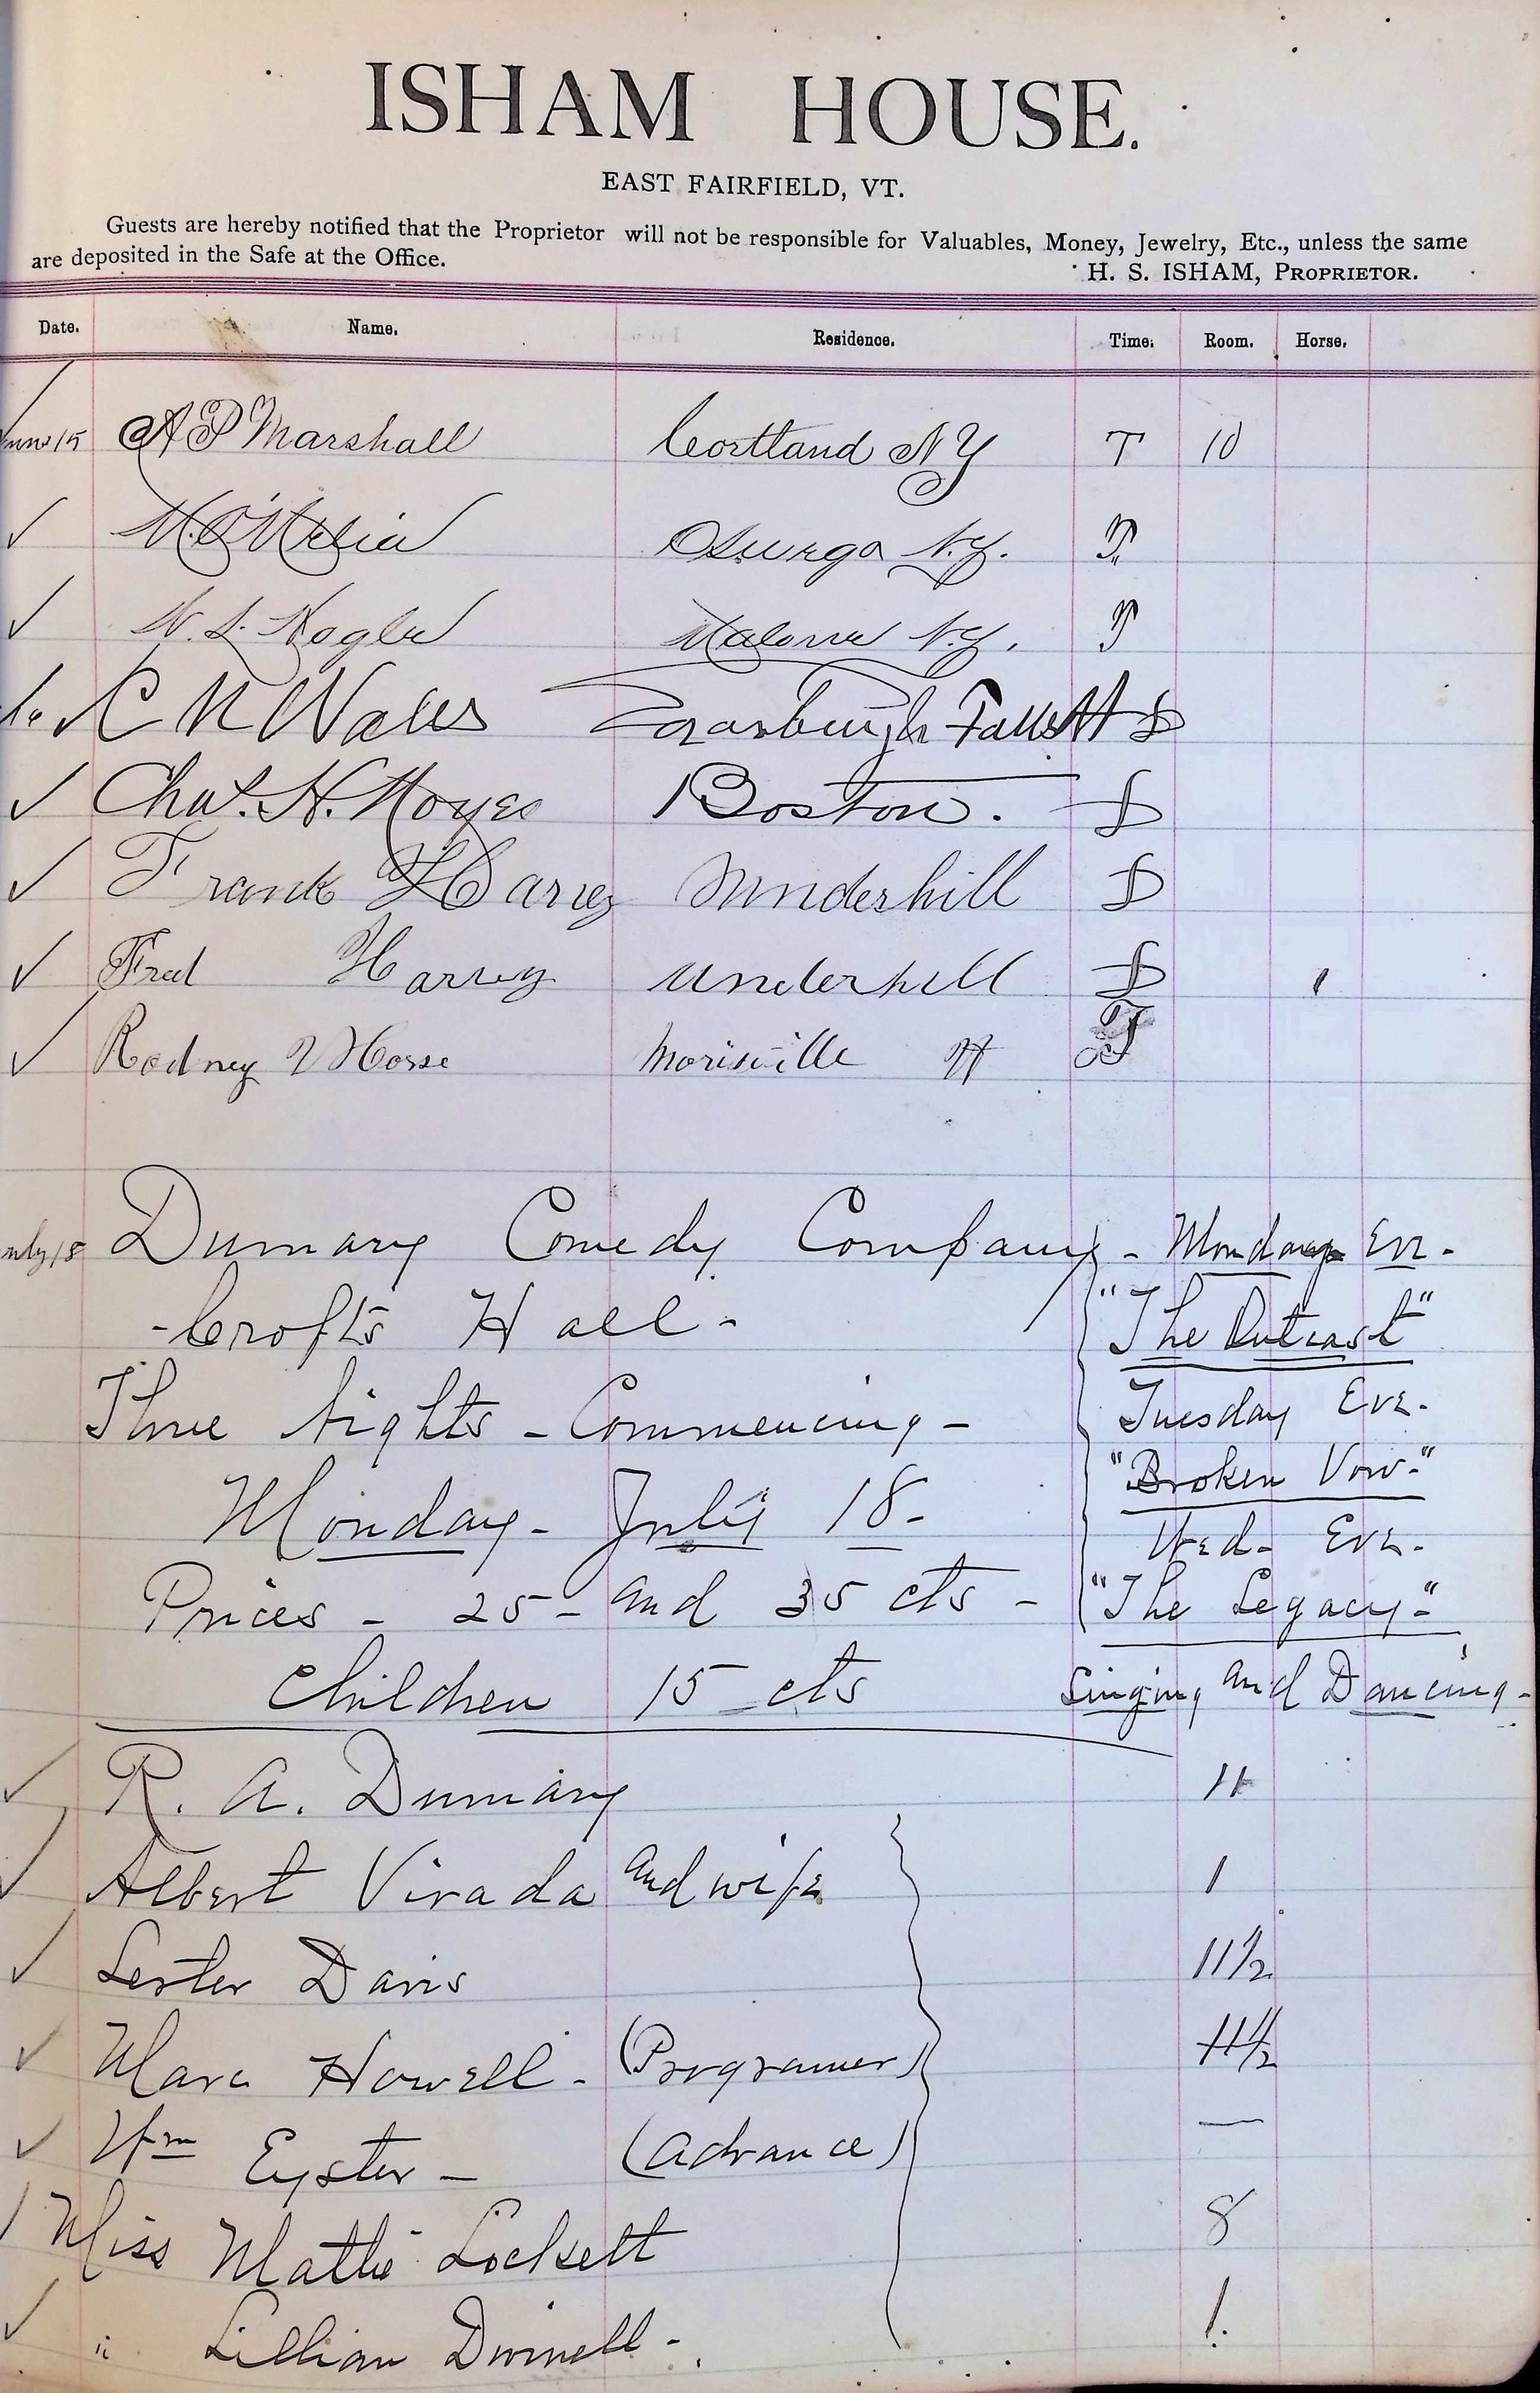 ISHAM HOUSE.
EAST FAIRFIELD, VT.
Guests are hereby notified that the Proprietor will not be responsible for Valuables, Money, Jewelry, Etc., unless the same
are deposited in the Safe at the Office.
H. S. ISHAM, PROPRIETOR.
Date. Name. Residence. Time. Room. Horse.
15 A P Marshall Cortland N Y T 10
Oswego N.Y. T
Malone N.Y. T
C N Wales Falls Vt D
Chas. H. Noyes Boston. D
Frank Harvey Underhill D
Fred Harvey Underhill D 1
Rodney V Morse Morisville Vt
July 18 Dumary Comedy Company - Monday Eve.
- Crofts Hall - "The Outcast"
Three Nights - Commencing - Tuesday Eve.
"Broken Vow."
Monday - July 18 - Wed - Eve.
Prices - 25 - and 35 cts - "The Legacy."
Children 15 cts Singing and Dancing -
R. A. Dumary 11
Albert Virada and wife 1
Lester Davis 11½
Howell - (Programer) 11½
Wm Eyster - (Advance) —
Miss Mattie Lockett 8
" Lillian Dwinell - 1.